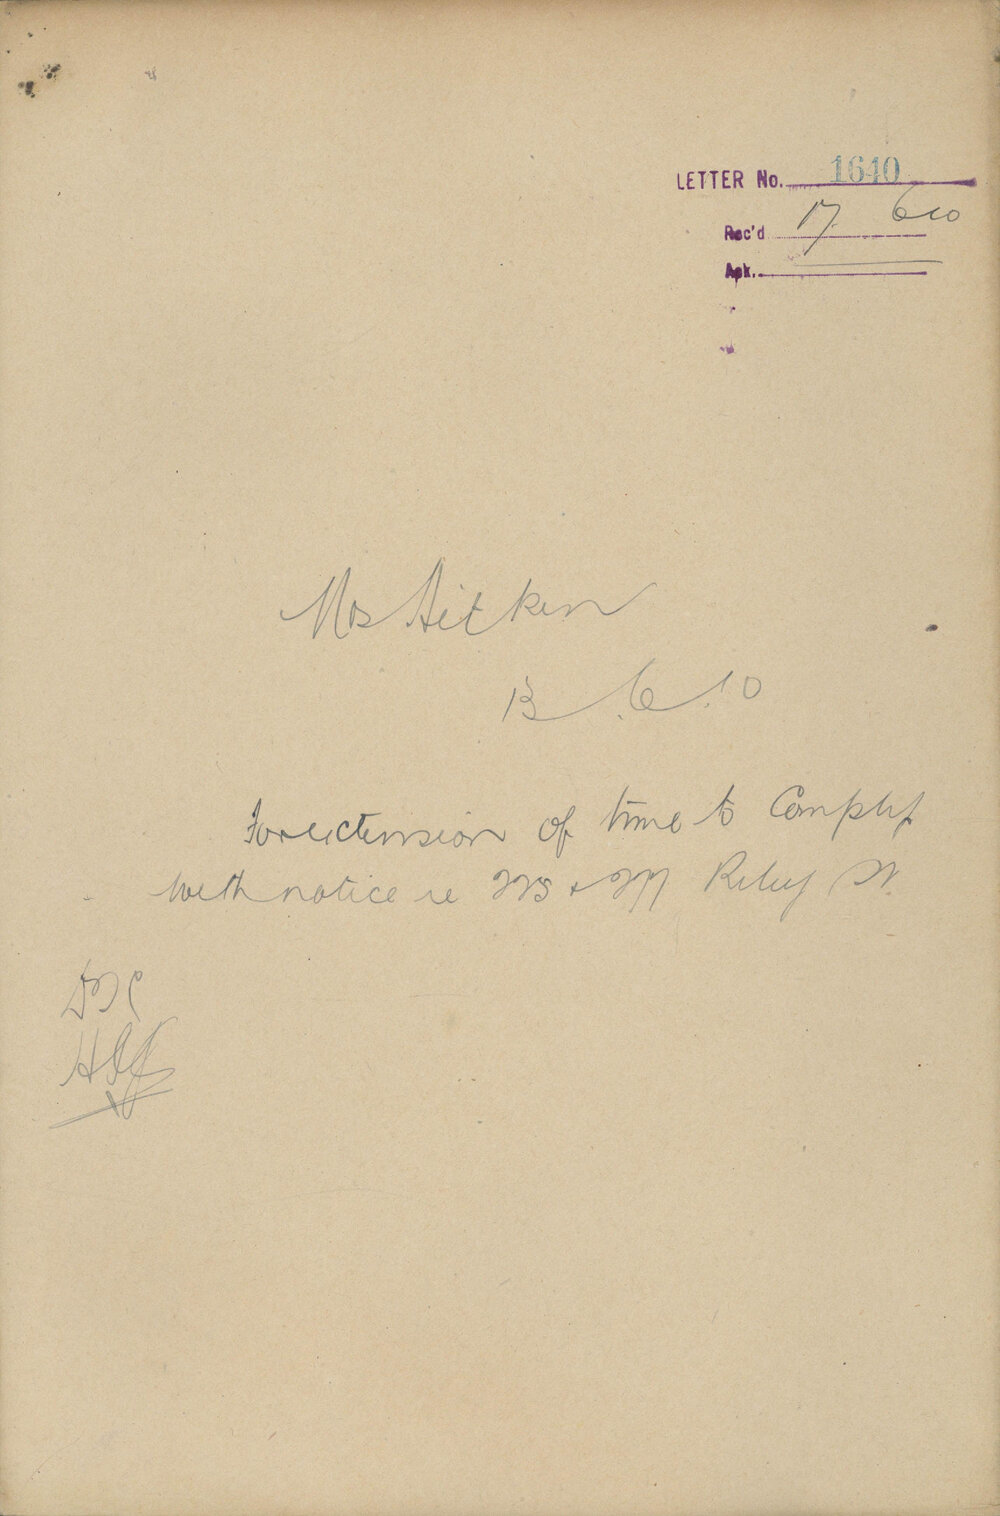 LETTER No. 1640
Rec'd 17 6 10
Ack.
Mrs Aitken
13.6.10
For extension of time to Comply
with notice re 223 & 221 Riley St.